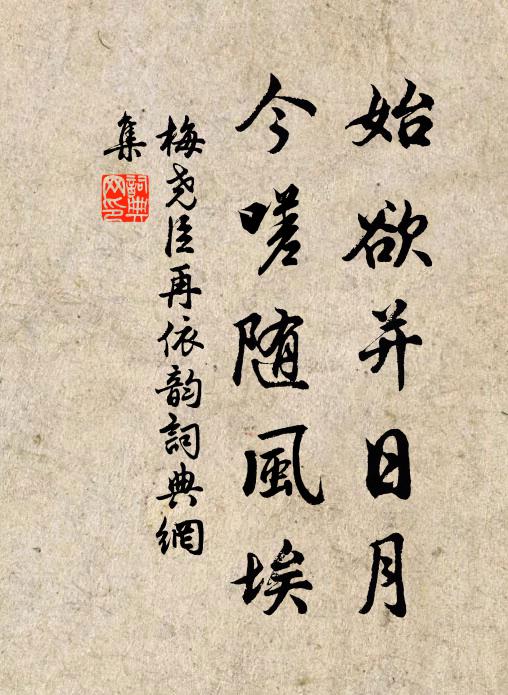 始欲并日月
今嗟随風埃
梅尧臣再依韵詞典網
集
詞典网印